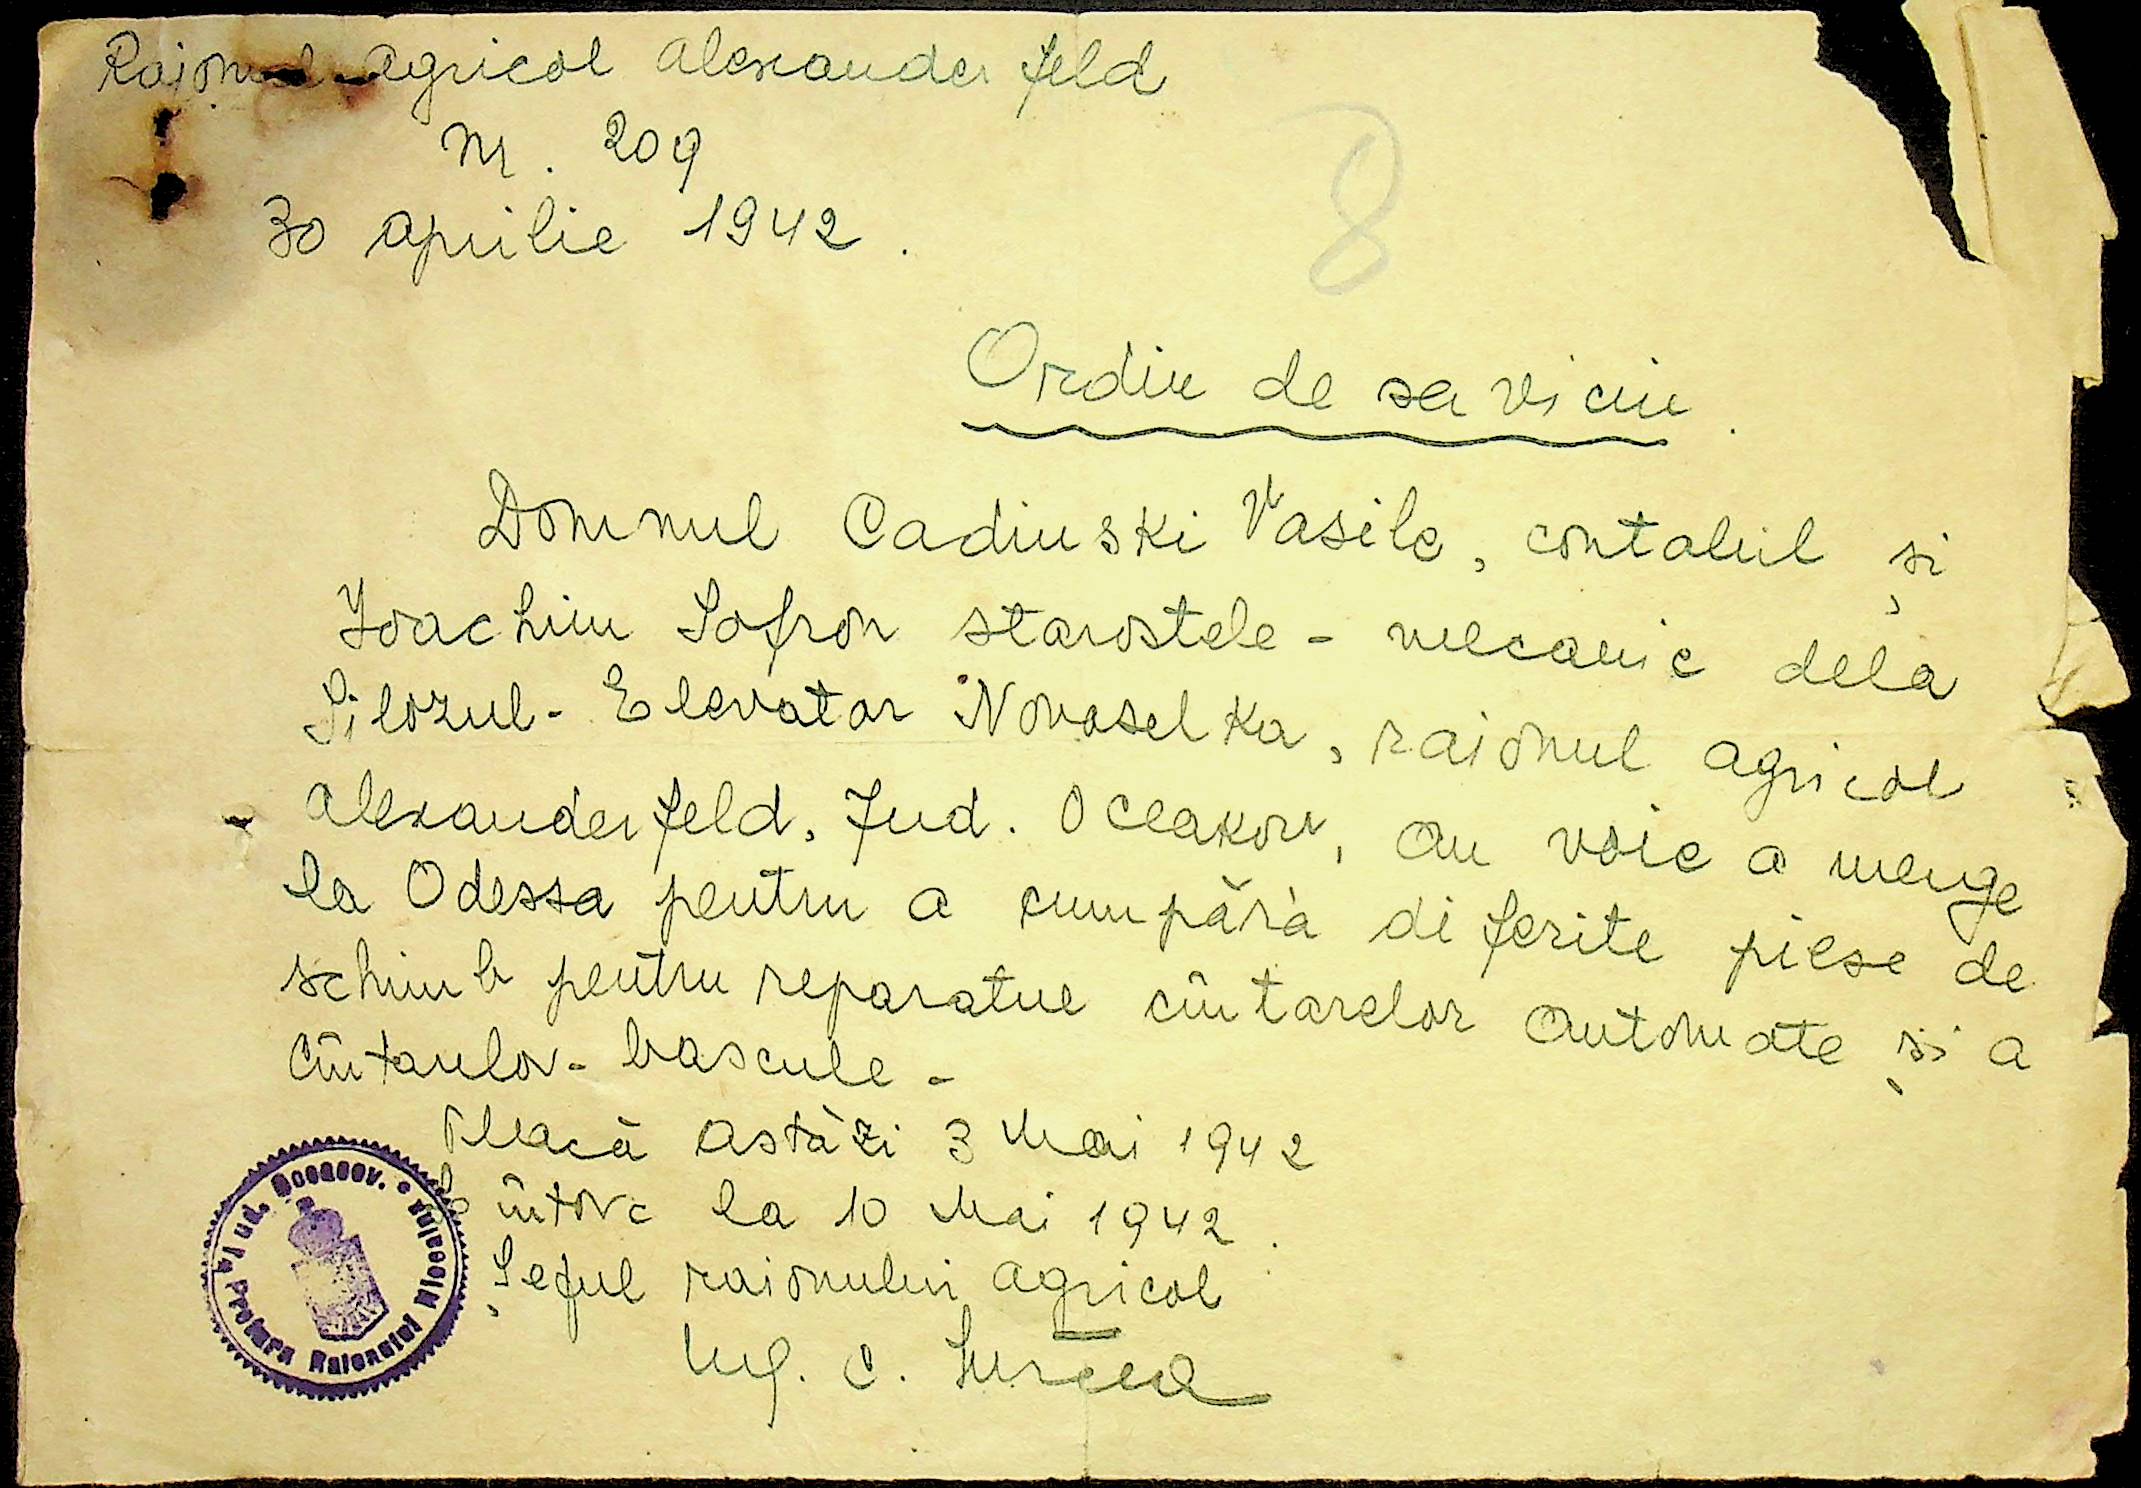 Raionul agricol Alexanderfeld
Nr. 209
30 aprilie 1942.
8
Ordin de serviciu.
Domnul Cadinski Vasile, contabil și
Joachim Sofron starostele - mecanic dela
Silozul - Elevator Novoselka, raionul agricol
Alexanderfeld, Jud. Oceakow, au voie a merge
la Odessa pentru a cumpără diferite piese de
schimb pentru reparatue cîntarelor automate și a
Cîntarelor - bascule -
Pleacă astăzi 3 Mai 1942
Se întorc la 10 Mai 1942.
Șeful raionului agricol
Ing. C.
Jud. Oceacov.
Pretura Raionului